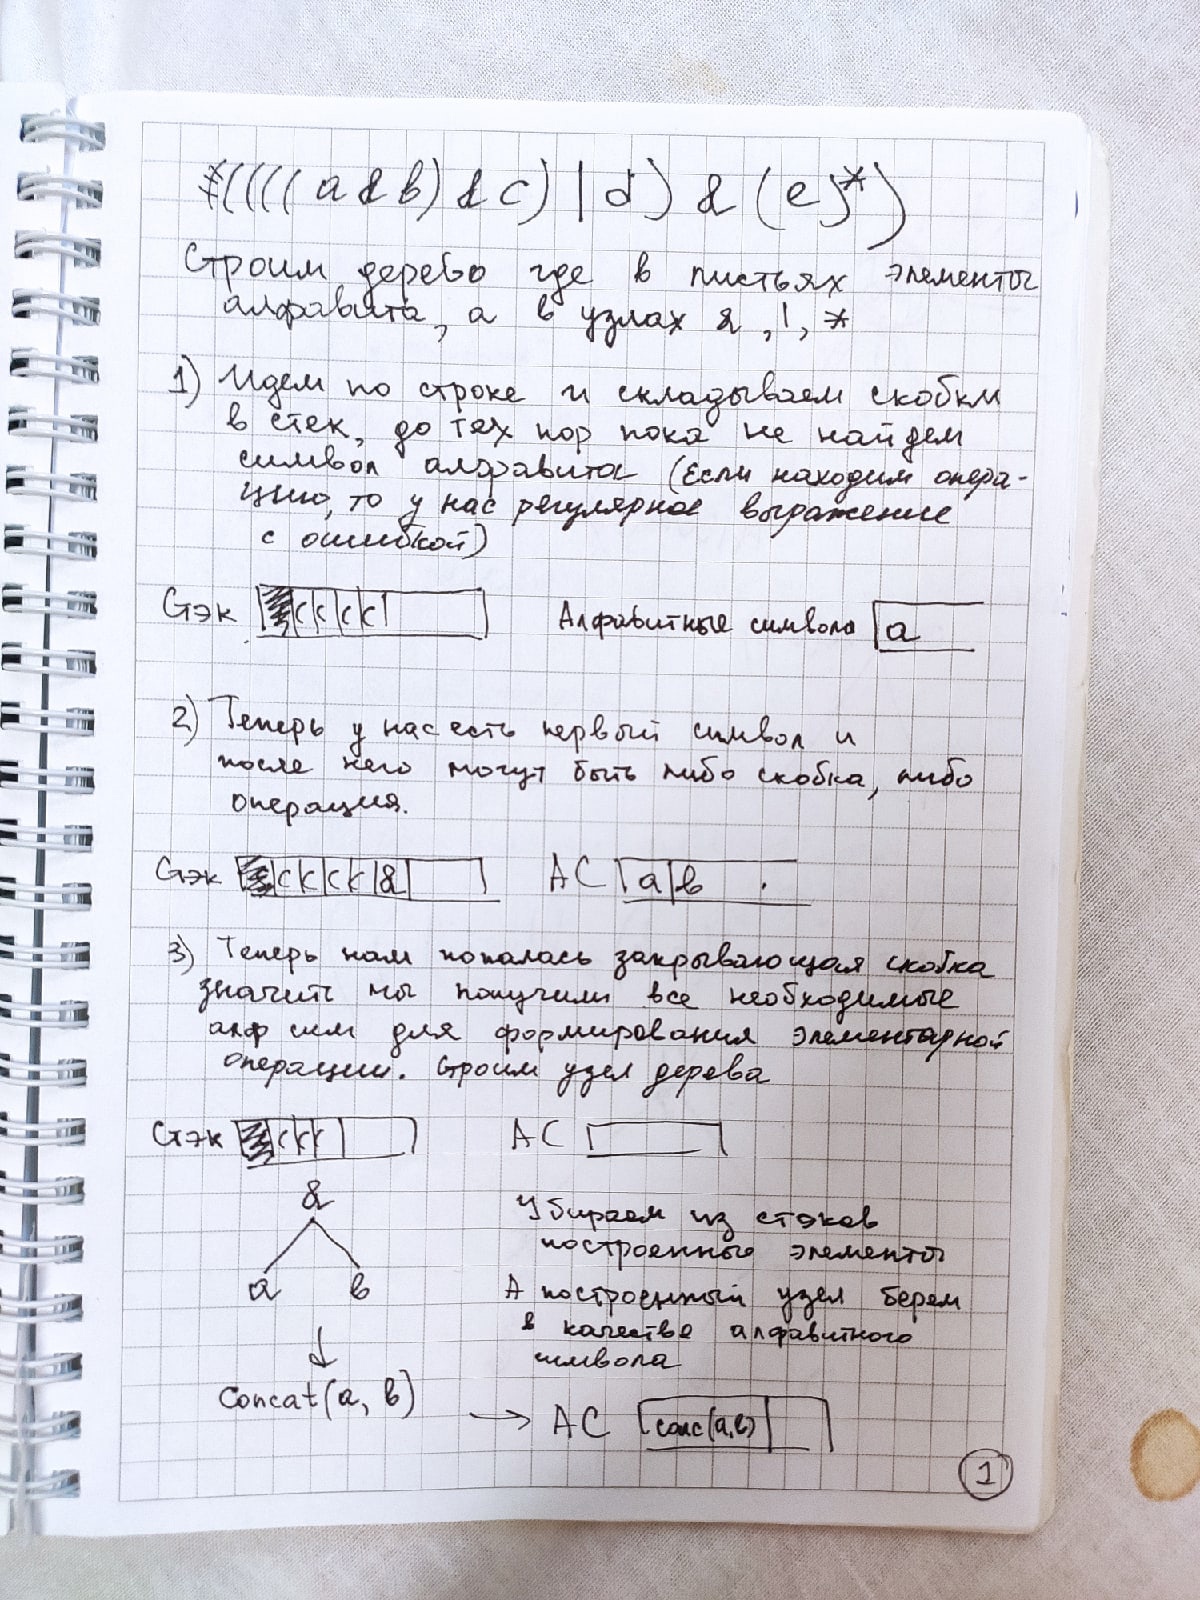 ((((a & b) & c) | d) & (e)*)
Строим дерево где в листьях элементы
алфавита, а в узлах &, |, *
1) Идем по строке и складываем скобки
в стек, до тех пор пока не найдем
символ алфавита (Если находим опера-
цию, то у нас регулярное выражение
с ошибкой)
Стэк ( ( ( ( Алфавитные символа a
2) Теперь у нас есть первый символ и
после него могут быть либо скобка, либо
операция.
Стэк ( ( ( ( & АС a b
3) Теперь нам попалась закрывающая скобка
значит мы получили все необходимые
алф сим для формирования элементарной
операции. Строим узел дерева
Стэк ( ( ( АС
&
a b
Убираем из стэков
построенные элементы
А построенный узел берем
в качестве алфавитного
символа
Concat(a, b)
→ АС conc(a,b)
1